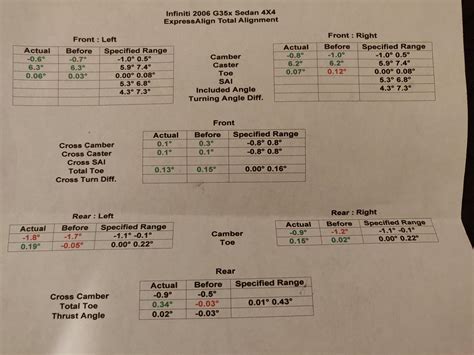 Infiniti 2006 G35x Sedan 4X4
ExpressAlign Total Alignment
Front : Left
Actual Before Specified Range
-0.6° -0.7° -1.0° 0.5°
6.3° 6.3° 5.9° 7.4°
0.06° 0.03° 0.00° 0.08°
5.3° 6.8°
4.3° 7.3°
Camber
Caster
Toe
SAI
Included Angle
Turning Angle Diff.
Front : Right
Actual Before Specified Range
-0.8° -1.0° -1.0° 0.5°
6.2° 6.2° 5.9° 7.4°
0.07° 0.12° 0.00° 0.08°
5.3° 6.8°
4.3° 7.3°
Front
Actual Before Specified Range
Cross Camber 0.1° 0.3° -0.8° 0.8°
Cross Caster 0.1° 0.1° -0.8° 0.8°
Cross SAI
Total Toe 0.13° 0.15° 0.00° 0.16°
Cross Turn Diff.
Rear : Left
Actual Before Specified Range
-1.8° -1.7° -1.1° -0.1°
0.19° -0.05° 0.00° 0.22°
Camber
Toe
Rear : Right
Actual Before Specified Range
-0.9° -1.2° -1.1° -0.1°
0.15° 0.02° 0.00° 0.22°
Rear
Actual Before Specified Range
Cross Camber -0.9° -0.5°
Total Toe 0.34° -0.03° 0.01° 0.43°
Thrust Angle 0.02° -0.03°